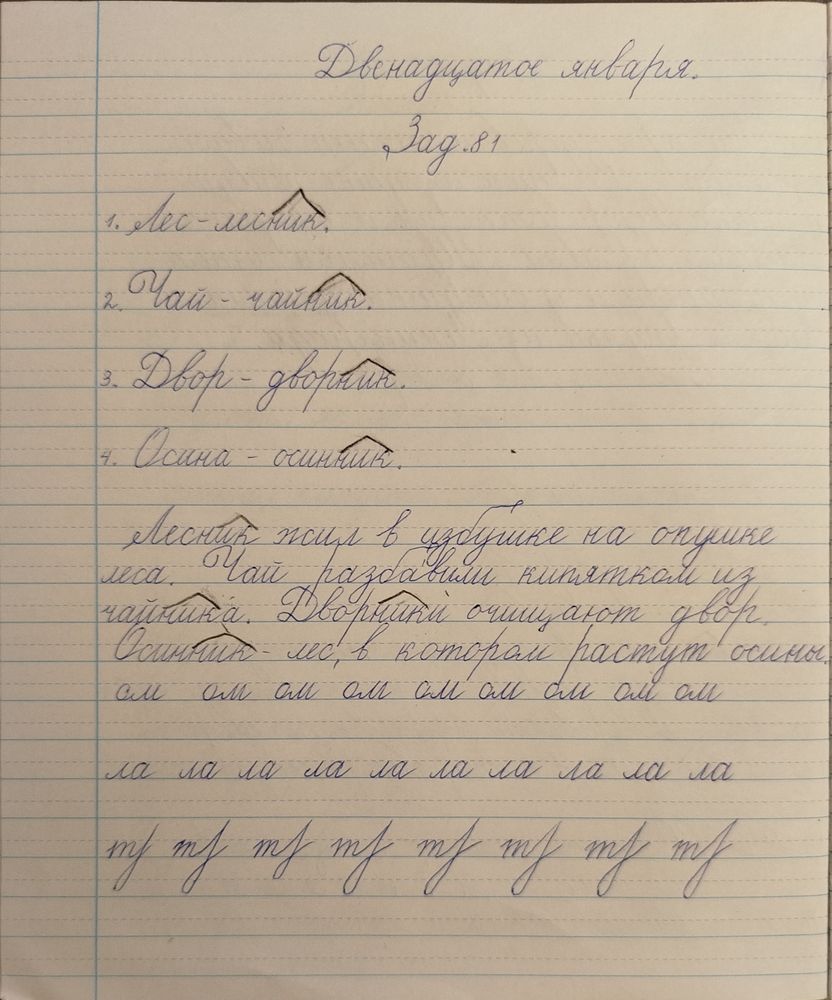 Двенадцатое января.
Зад.81
1. Лес - лесник.
2. Чай - чайник.
3. Двор - дворник.
4. Осина - осинник.
Лесник жил в избушке на опушке
леса. Чай разбавили кипятком из
чайника. Дворники очищают двор.
Осинник - лес, в котором растут осины.
ом ом ом ом ом ом ом ом ом
ла ла ла ла ла ла ла ла ла ла